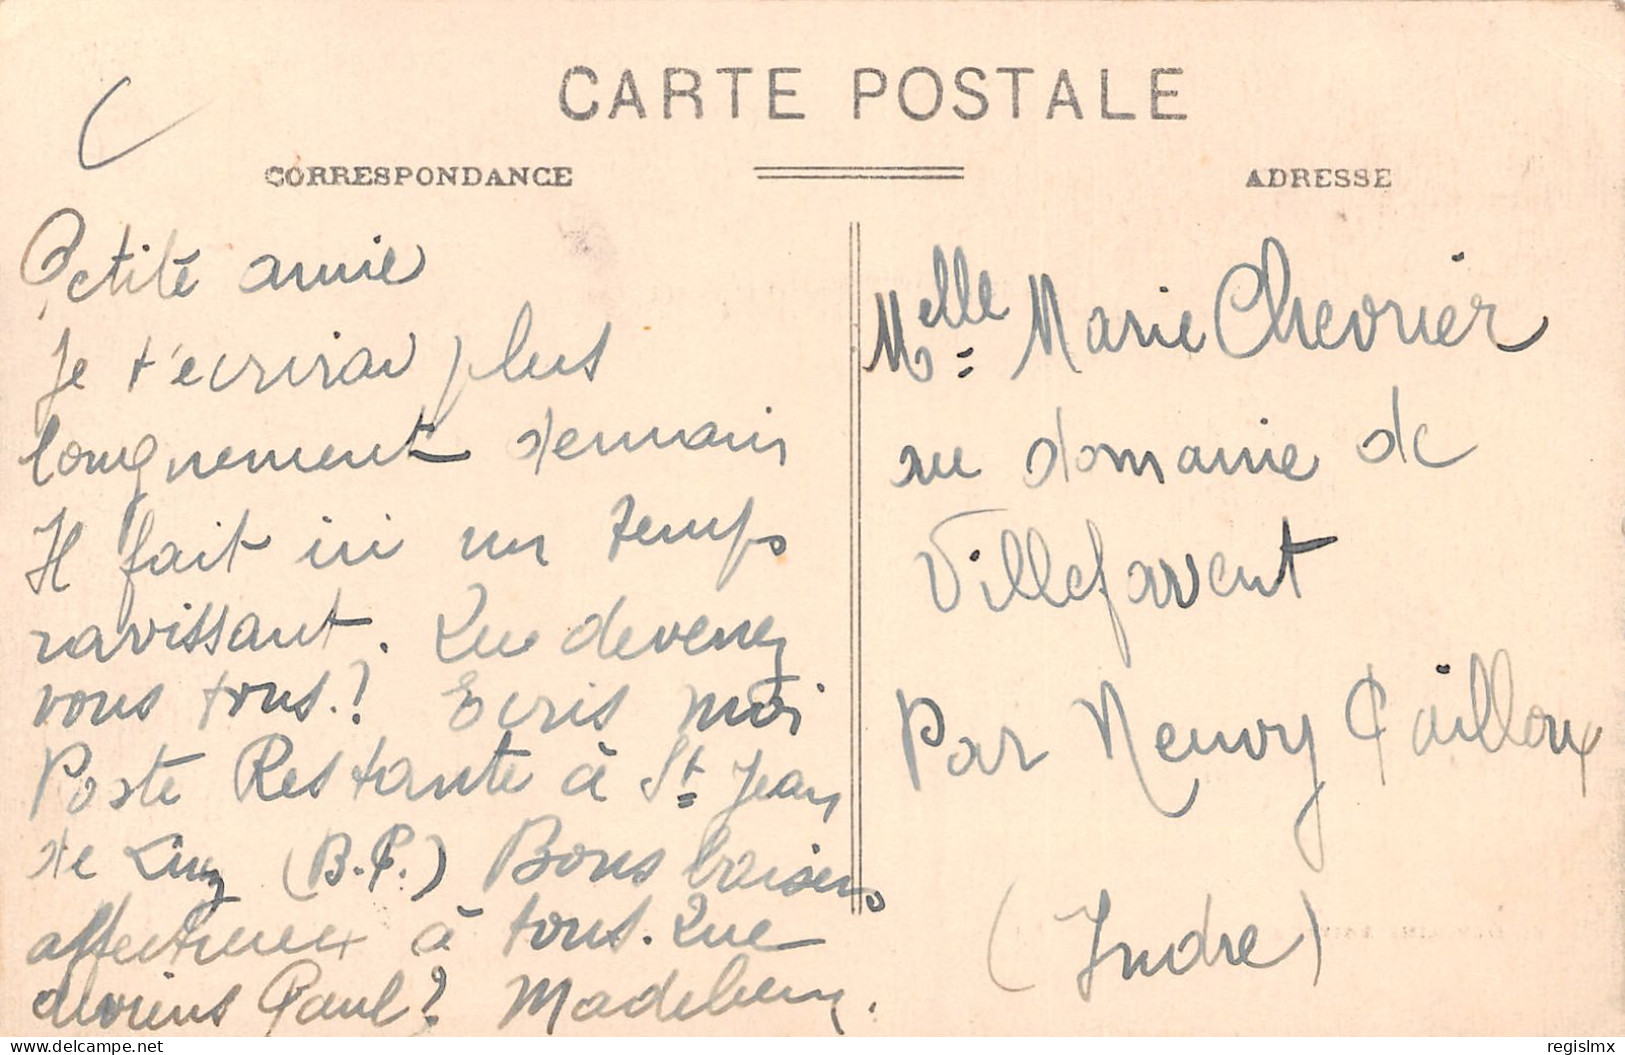 CARTE POSTALE
CORRESPONDANCE
ADRESSE
Petite amie
Je t'écrirai plus
longuement demain
Il fait ici un temps
ravissant. Que devenez
vous tous.? Ecris moi
Poste Restante à St Jean
de Luz (B.P.) Bons baisers
affectueux à tous. Que
deviens Paul? Madeleine.
Melle Marie Chevrier
au domaine de
Villefavent
Par Neuvy Pailloux
(Indre)
delcampe.net
regislmx